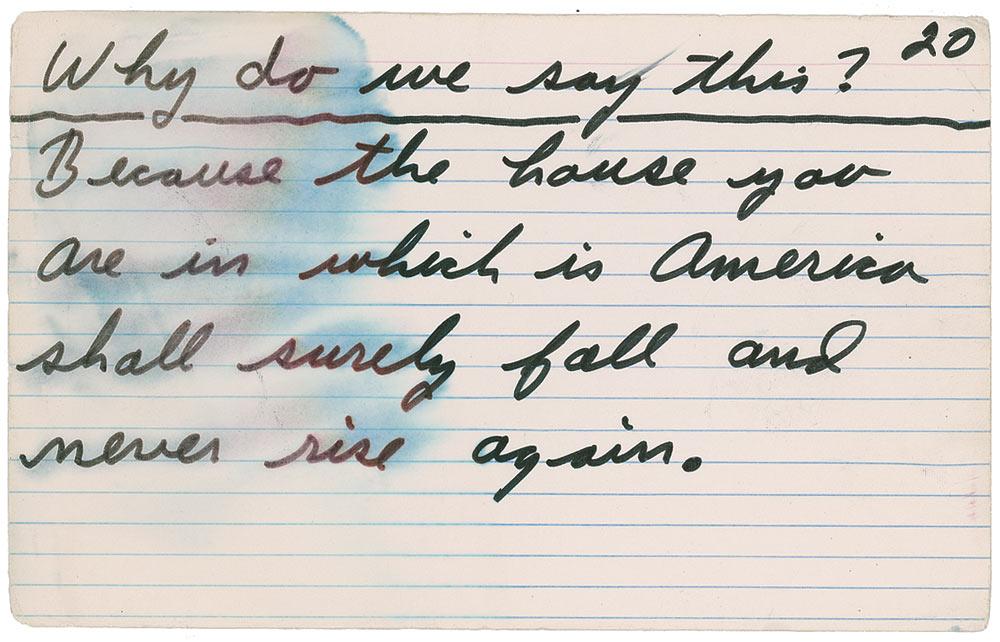 20
Why do we say this?
Because the house you
are in which is America
shall surely fall and
never rise again.